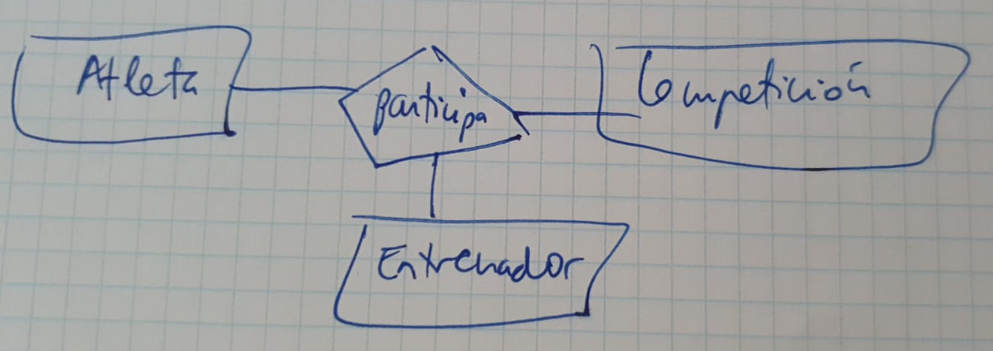 Atleta
participa
Competición
Entrenador